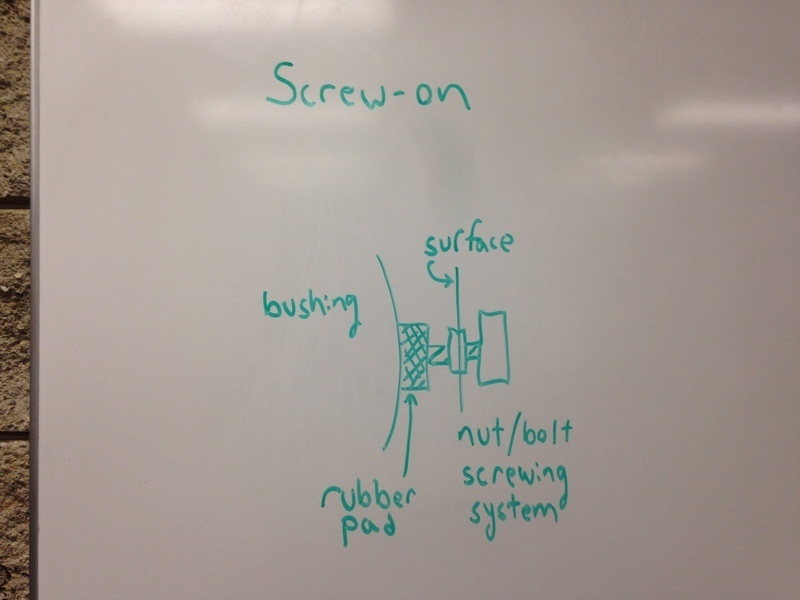 Screw-on
surface
bushing
nut/bolt
screwing
system
rubber
pad